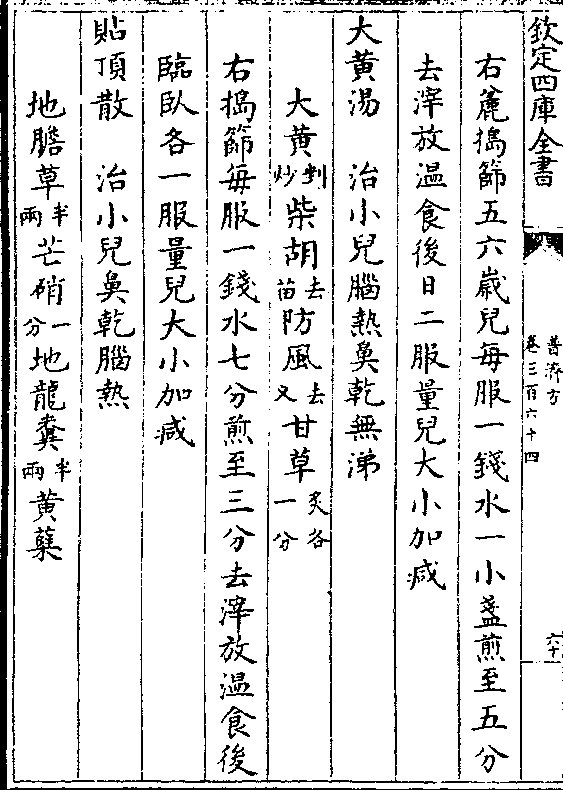 欽定四庫全書
普濟方
卷三百六十四
六十
右麄搗篩五六歲兒每服一錢水一小盞煎至五分
去滓放温食後日二服量兒大小加减
大黄湯　治小兒腦熱鼻乾無涕
大黄剉炒柴胡去苗防風去叉甘草炙各一分
右搗篩每服一錢水七分煎至三分去滓放温食後
臨臥各一服量兒大小加减
貼頂散　治小兒鼻乾腦熱
地膽草半兩芒硝一分地龍糞半兩黄蘗